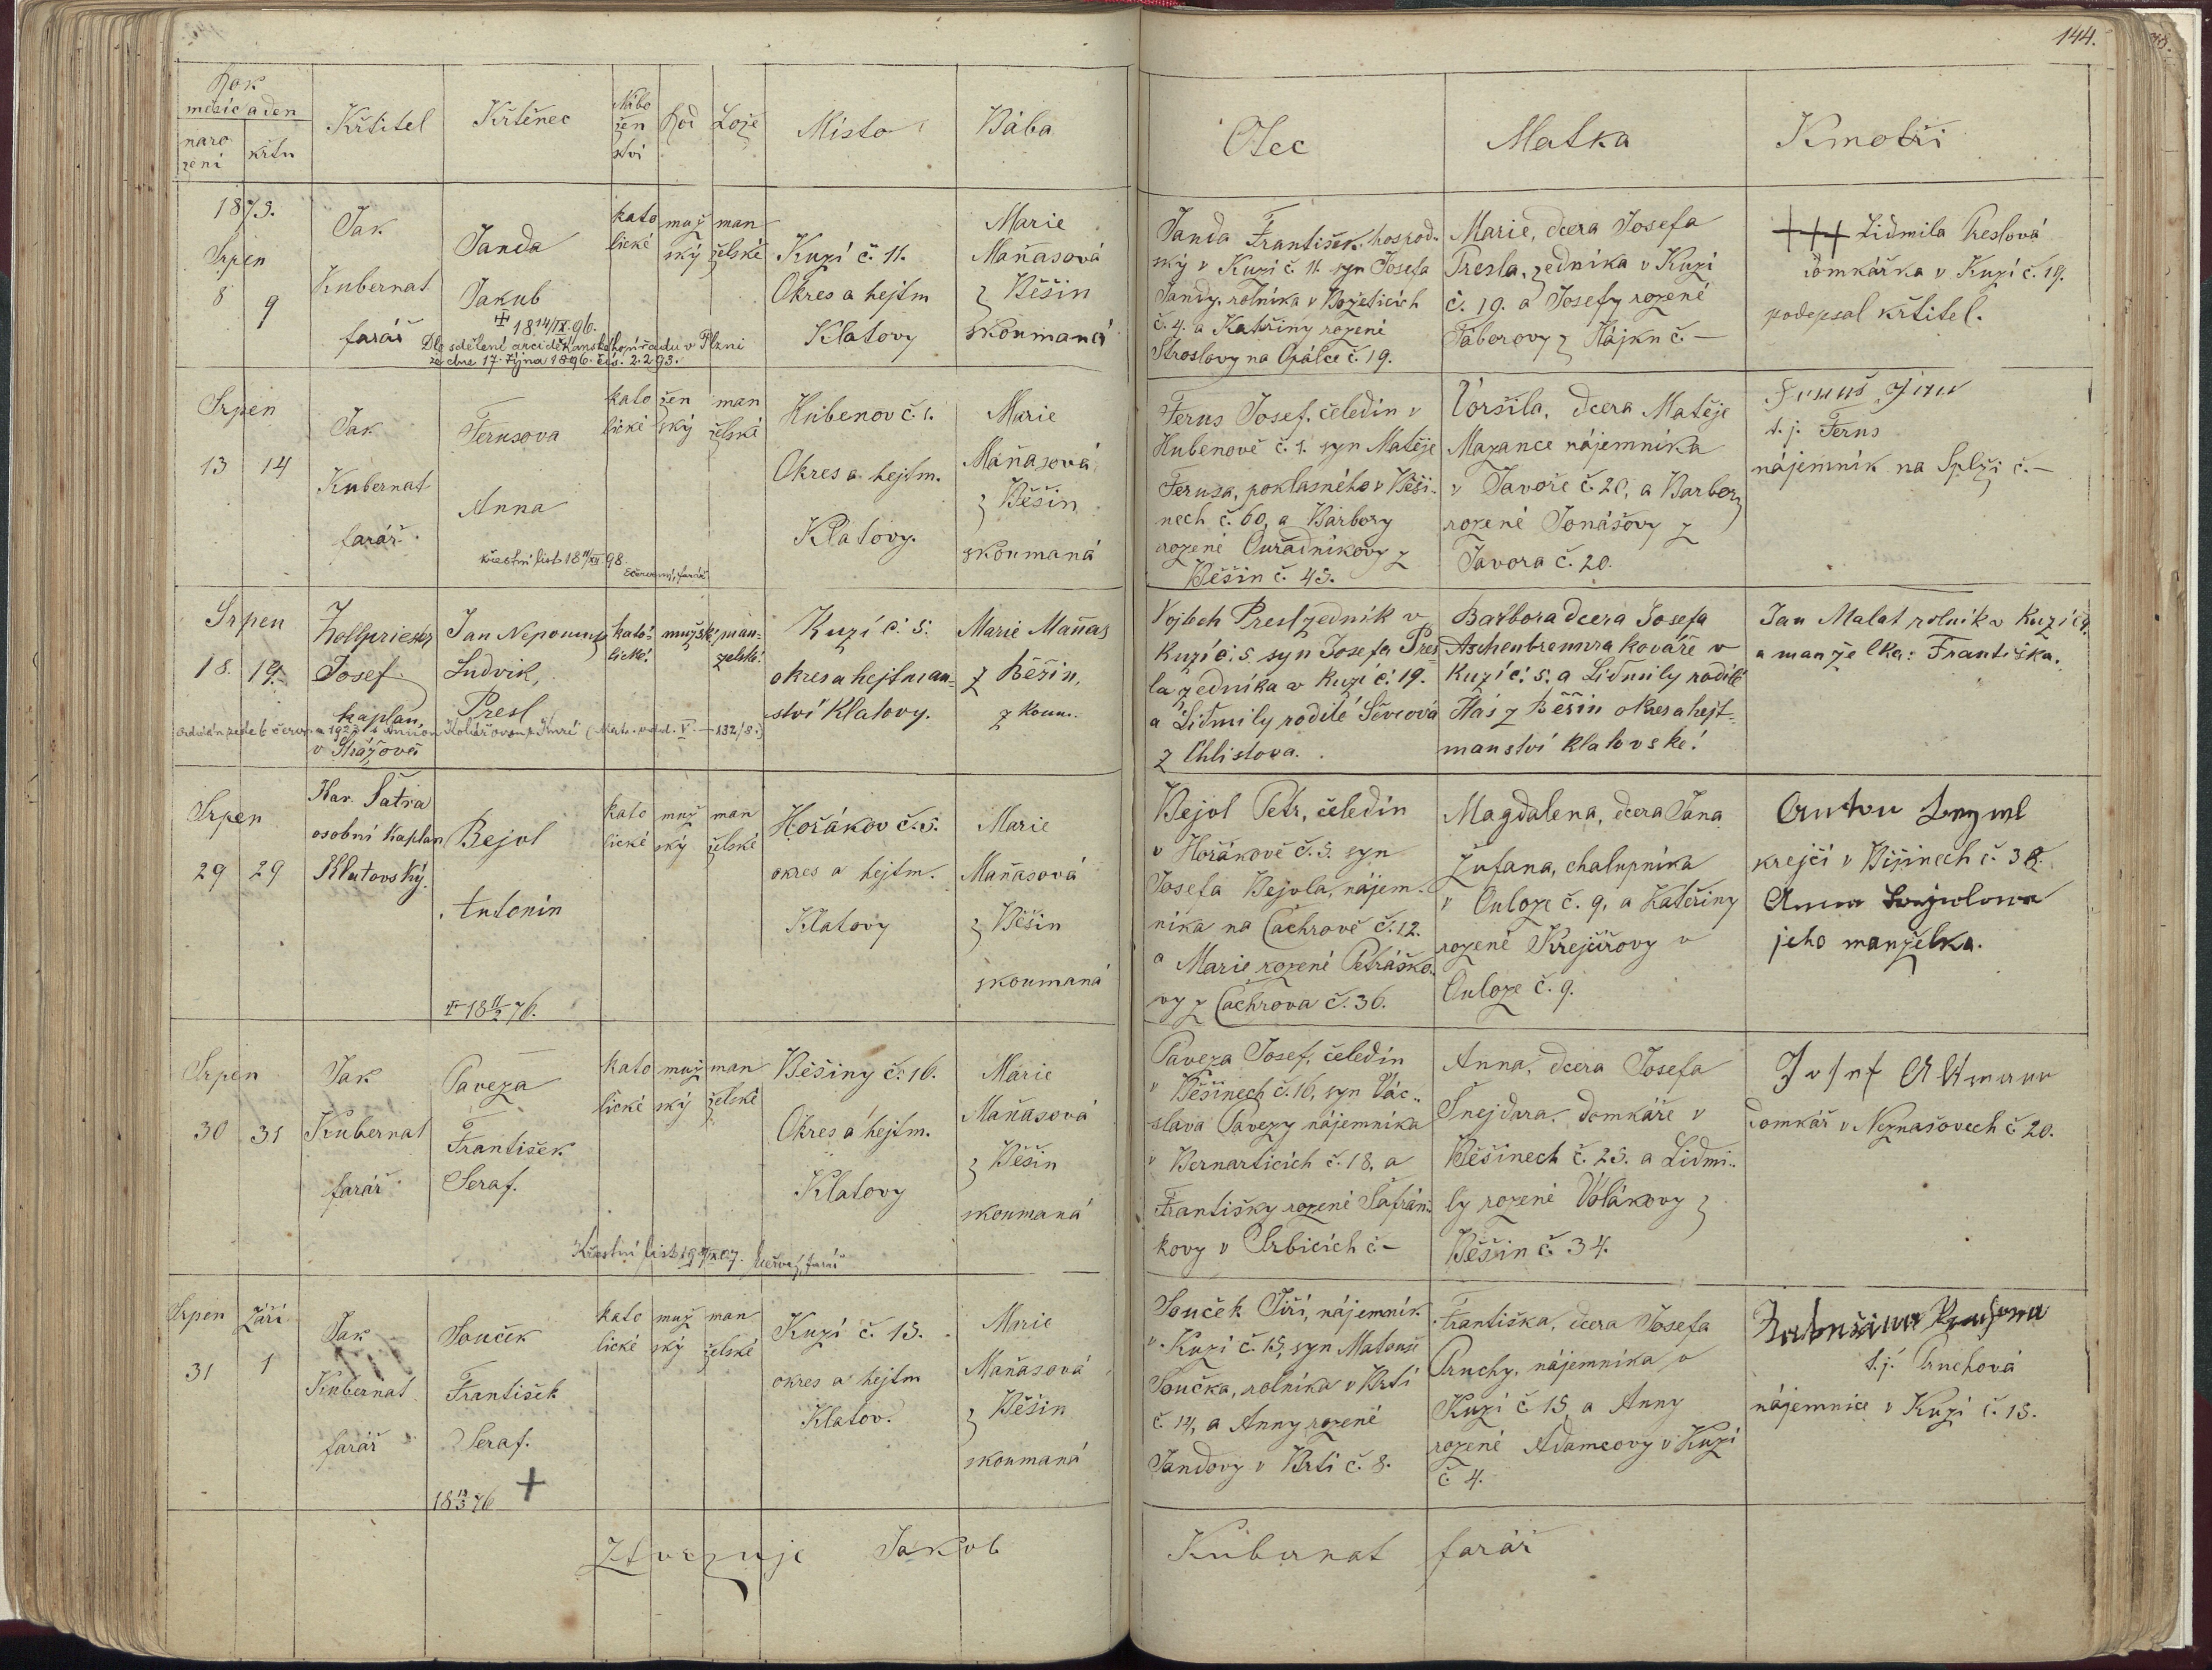 144.
Rok
měsíc a den
naro
zení
křtu
Křtitel
Křtěnec
Nábo
žen
ství
Rod
Lože
Místo
Bába
Otec
Matka
Kmotři
1873.
Srpen
8 9
Jak
Kubernat
farář
Janda
Jakub
18 14/IX. 96.
Dle sdělení arciděkanského úřadu v Plzni
ze dne 17. října 1896. čís. 2293.
kato
lické
muž
ský
man
želské
Kuzí č. 11.
Okres a hejtm
Klatovy
Marie
Maňasová
z Běšin
zkoumaná
Janda František, hospod.
ský v Kuzí č. 11. syn Josefa
Jandy, rolníka v Božeticích
č. 4. a Kateřiny rozené
Stroslovy na Opálce č. 19.
Marie, dcera Josefa
Presla, zedníka v Kuzí
č. 19. a Josefy rozené
Táborovy z Hájku č. –
+++ Lidmila Preslová
domkářka v Kuzí č. 19.
podepsal křtitel.
Srpen
13 14
Jak
Kubernat
farář
Ferusova
Anna
křestní list 18 11/XII 98
farář
kato
lické
žen
ský
man
želské
Hubenov č. 1.
Okres a hejtm.
Klatovy.
Marie
Maňasová
z Běšin
zkoumaná
Ferus Josef, čeledín v
Hubenově č. 1. syn Matěje
Ferusa, poklasného v Běši-
nech č. 60, a Barbory
rozené Ouřadníkovy z
Běšin č. 45.
Voršila, dcera Matěje
Mazance nájemníka
v Javoře č. 20, a Barbory
rozené Jonášovy z
Javora č. 20.
t. j. Ferus
nájemník na Splži č. –
Srpen
18. 19.
Zollpriester
Josef
kaplan,
v Strážově
Jan Nepomuk
Ludvík,
Presl
kato-
lické
mužský
man-
želské
Kuzí č. 5.
okres a hejtman-
ství Klatovy.
Marie Maňas
z Běšin,
zkoum.
Vojtěch Presl zedník v
Kuzí č. 5. syn Josefa Pres-
la zedníka v Kuzí č. 19.
a Lidmily rodilé Ševcová
z Chlistova.
Barbora dcera Josefa
Aschenbrennra kováře v
Kuzí č. 5. a Lidmily rodilé
Hais z Běšin okres a hejt-
manství klatovské.
Jan Malat rolník v Kuzí č. 9.
a manželka: Františka.
Srpen
29 29
Kar. Šatra
osobní kaplan
Klatovský.
Bejvl
Antonín
18 11/2 76.
kato
lické
muž
ský
man
želské
Hořákov č. 5.
okres a hejtm.
Klatovy
Marie
Maňasová
z Běšin
zkoumaná
Bejvl Petr, čeledín
v Hořákově č. 5. syn
Josefa Bejvla, nájem-
níka na Čachrově č. 12.
a Marie rozené Petráško-
vy z Čachrova č. 36.
Magdalena, dcera Jana
Žufana, chalupníka
v Onloze č. 9, a Kateřiny
rozené Krejčířovy v
Onloze č. 9.
krejčí v Běšinech č. 38.
jeho manželka.
Srpen
30 31
Jak
Kubernat
farář
Paveza
František
Seraf.
kato
lické
muž
ský
man
želské
Běšiny č. 16.
Okres a hejtm.
Klatovy
Marie
Maňasová
z Běšin
zkoumaná
Paveza Josef, čeledín
v Běšinech č. 16, syn Vác-
slava Pavezy nájemníka
v Bernarticích č. 18, a
Františky rozené Šafrán-
kovy v Srbicích č. –
Anna, dcera Josefa
Šnejdara domkáře v
Běšinech č. 25. a Lidmi-
ly rozené Volákovy z
Běšin č. 34.
Josef Altmann
domkář v Neznašovech č. 20.
Křestní list farář
Srpen Září
31 1
Jak
Kubernat
farář
Souček
František
Seraf.
+
18 13/3 76
kato
lické
muž
ský
man
želské
Kuzí č. 15.
okres a hejtm
Klatov.
Marie
Maňasová
z Běšin
zkoumaná
Souček Jiří, nájemník
v Kuzí č. 15, syn Matouše
Součka, rolníka v Brti
č. 14, a Anny rozené
Jandovy v Brti č. 8.
Františka, dcera Josefa
Pruchy, nájemníka v
Kuzí č. 15, a Anny
rozené Adamcovy v Kuzí
č. 4.
t. j. Pruchová
nájemnice v Kuzí č. 15.
Ztvrzuje Jakob Kubernat farář